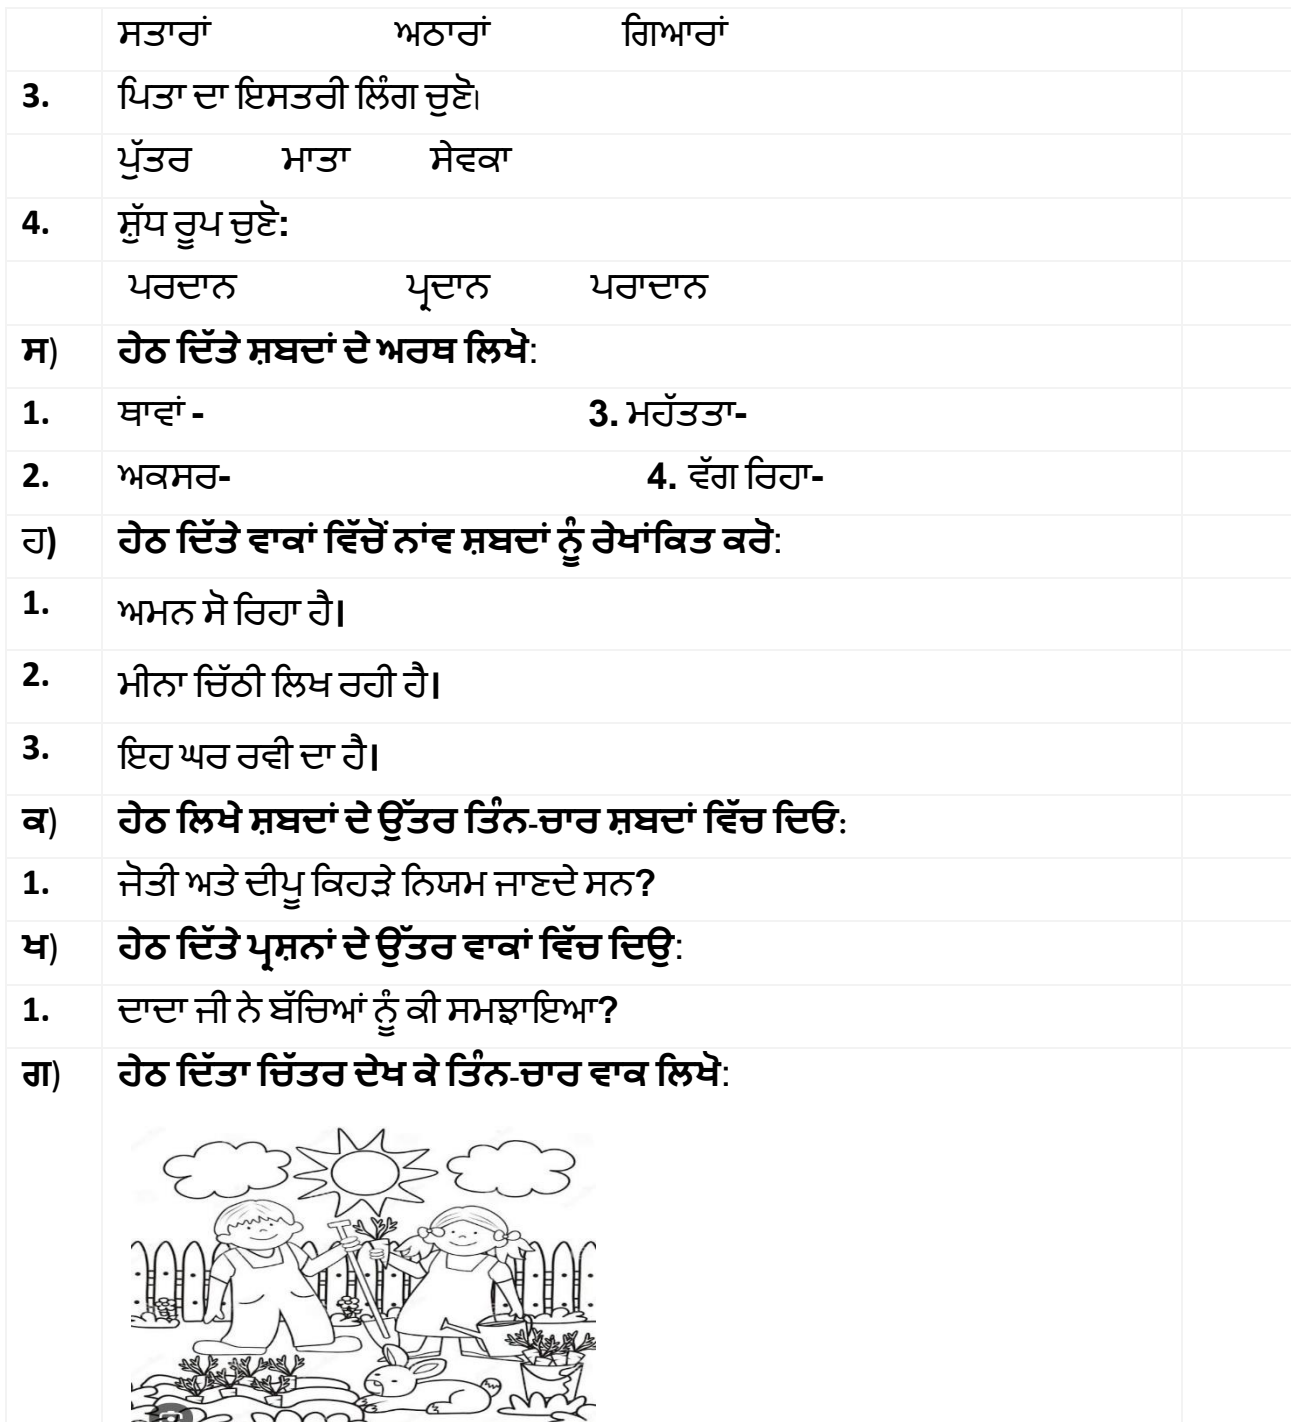 ਸਤਾਰਾਂ ਅਠਾਰਾਂ ਗਿਆਰਾਂ
3. ਪਿਤਾ ਦਾ ਇਸਤਰੀ ਲਿੰਗ ਚੁਣੋ।
ਪੁੱਤਰ ਮਾਤਾ ਸੇਵਕਾ
4. ਸ਼ੁੱਧ ਰੂਪ ਚੁਣੋ:
ਪਰਦਾਨ ਪ੍ਰਦਾਨ ਪਰਾਦਾਨ
ਸ) ਹੇਠ ਦਿੱਤੇ ਸ਼ਬਦਾਂ ਦੇ ਅਰਥ ਲਿਖੋ:
1. ਥਾਵਾਂ - 3. ਮਹੱਤਤਾ-
2. ਅਕਸਰ- 4. ਵੱਗ ਰਿਹਾ-
ਹ) ਹੇਠ ਦਿੱਤੇ ਵਾਕਾਂ ਵਿੱਚੋਂ ਨਾਂਵ ਸ਼ਬਦਾਂ ਨੂੰ ਰੇਖਾਂਕਿਤ ਕਰੋ:
1. ਅਮਨ ਸੋ ਰਿਹਾ ਹੈ।
2. ਮੀਨਾ ਚਿੱਠੀ ਲਿਖ ਰਹੀ ਹੈ।
3. ਇਹ ਘਰ ਰਵੀ ਦਾ ਹੈ।
ਕ) ਹੇਠ ਲਿਖੇ ਸ਼ਬਦਾਂ ਦੇ ਉੱਤਰ ਤਿੰਨ-ਚਾਰ ਸ਼ਬਦਾਂ ਵਿੱਚ ਦਿਓ:
1. ਜੋਤੀ ਅਤੇ ਦੀਪੂ ਕਿਹੜੇ ਨਿਯਮ ਜਾਣਦੇ ਸਨ?
ਖ) ਹੇਠ ਦਿੱਤੇ ਪ੍ਰਸ਼ਨਾਂ ਦੇ ਉੱਤਰ ਵਾਕਾਂ ਵਿੱਚ ਦਿਉ:
1. ਦਾਦਾ ਜੀ ਨੇ ਬੱਚਿਆਂ ਨੂੰ ਕੀ ਸਮਝਾਇਆ?
ਗ) ਹੇਠ ਦਿੱਤਾ ਚਿੱਤਰ ਦੇਖ ਕੇ ਤਿੰਨ-ਚਾਰ ਵਾਕ ਲਿਖੋ: